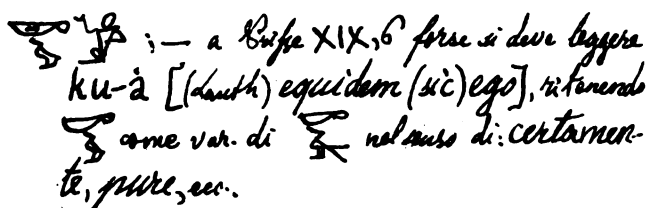 ; — a Prisse XIX, 6 forse si deve leggere
ku-à [(Lauth) equidem (sic) ego], ritenendo
come var. di nel senso di: certamen-
te, pure, ecc.